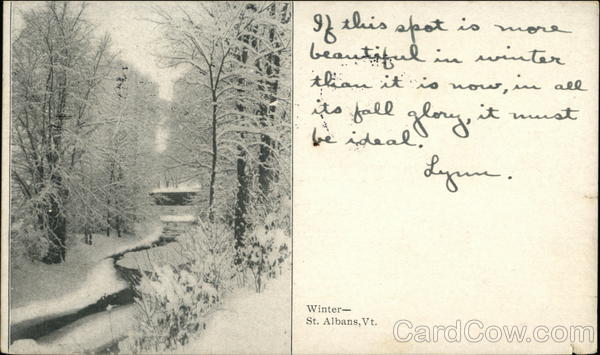 If this spot is more
beautiful in winter
than it is now, in all
its fall glory, it must
be ideal.
Lynn.
Winter—
St. Albans, Vt.
CardCow.com